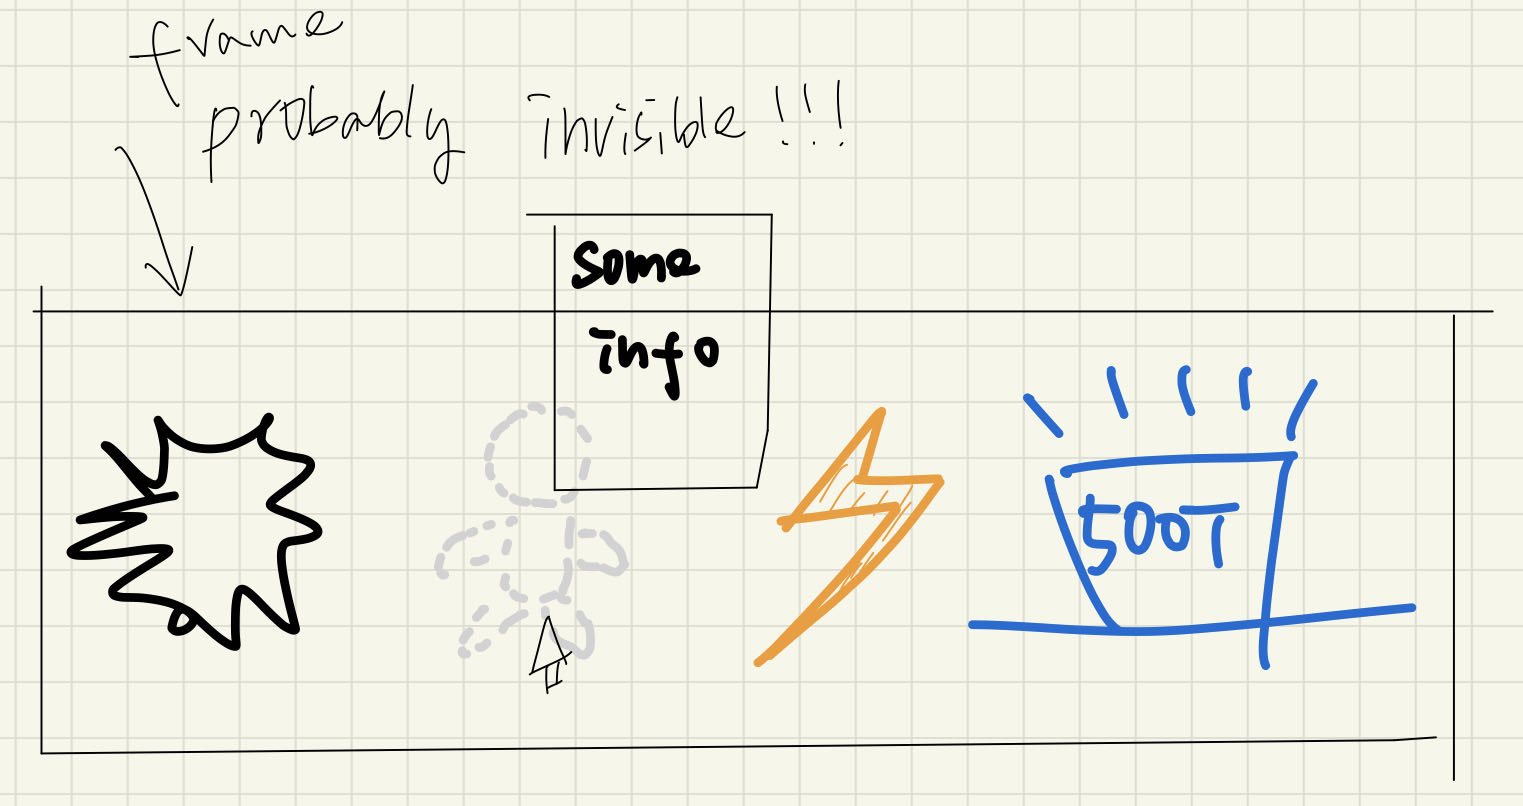 frame
probably invisible!!!
some
info
500T